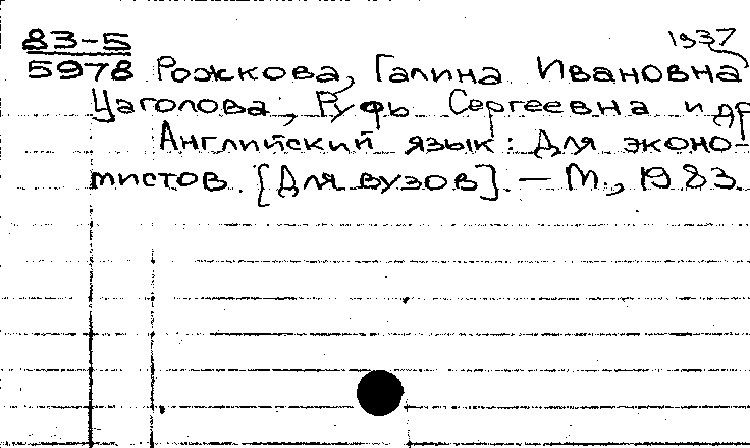 83-5 1937
5978 Рожкова, Галина Ивановна
Цаголова, Руфь Сергеевна и др
Английский язык: Для эконо-
мистов. [Для вузов]. — М., 1983.